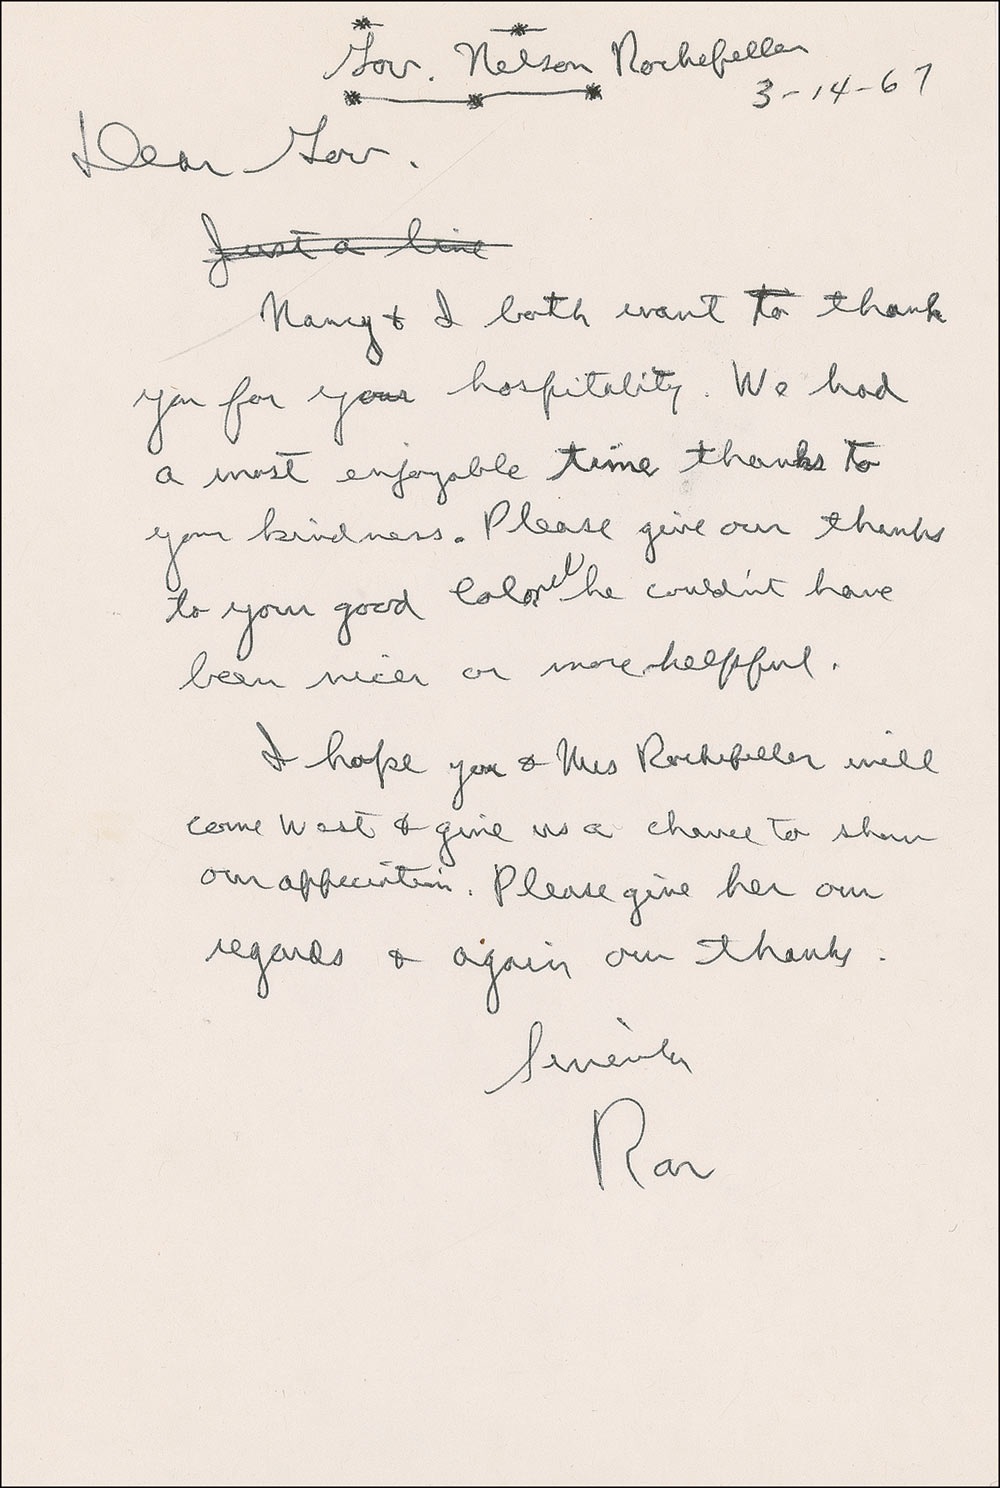 Gov. Nelson Rockefeller
3-14-67
Dear Gov.
Just a line
Nancy & I both want to thank
you for your hospitality. We had
a most enjoyable time thanks to
your kindness. Please give our thanks
to your good Colonel he couldn't have
been nicer or more helpful.
I hope you & Mrs Rockefeller will
come West & give us a chance to show
our appreciation. Please give her our
regards & again our thanks.
Sincerely
Ron